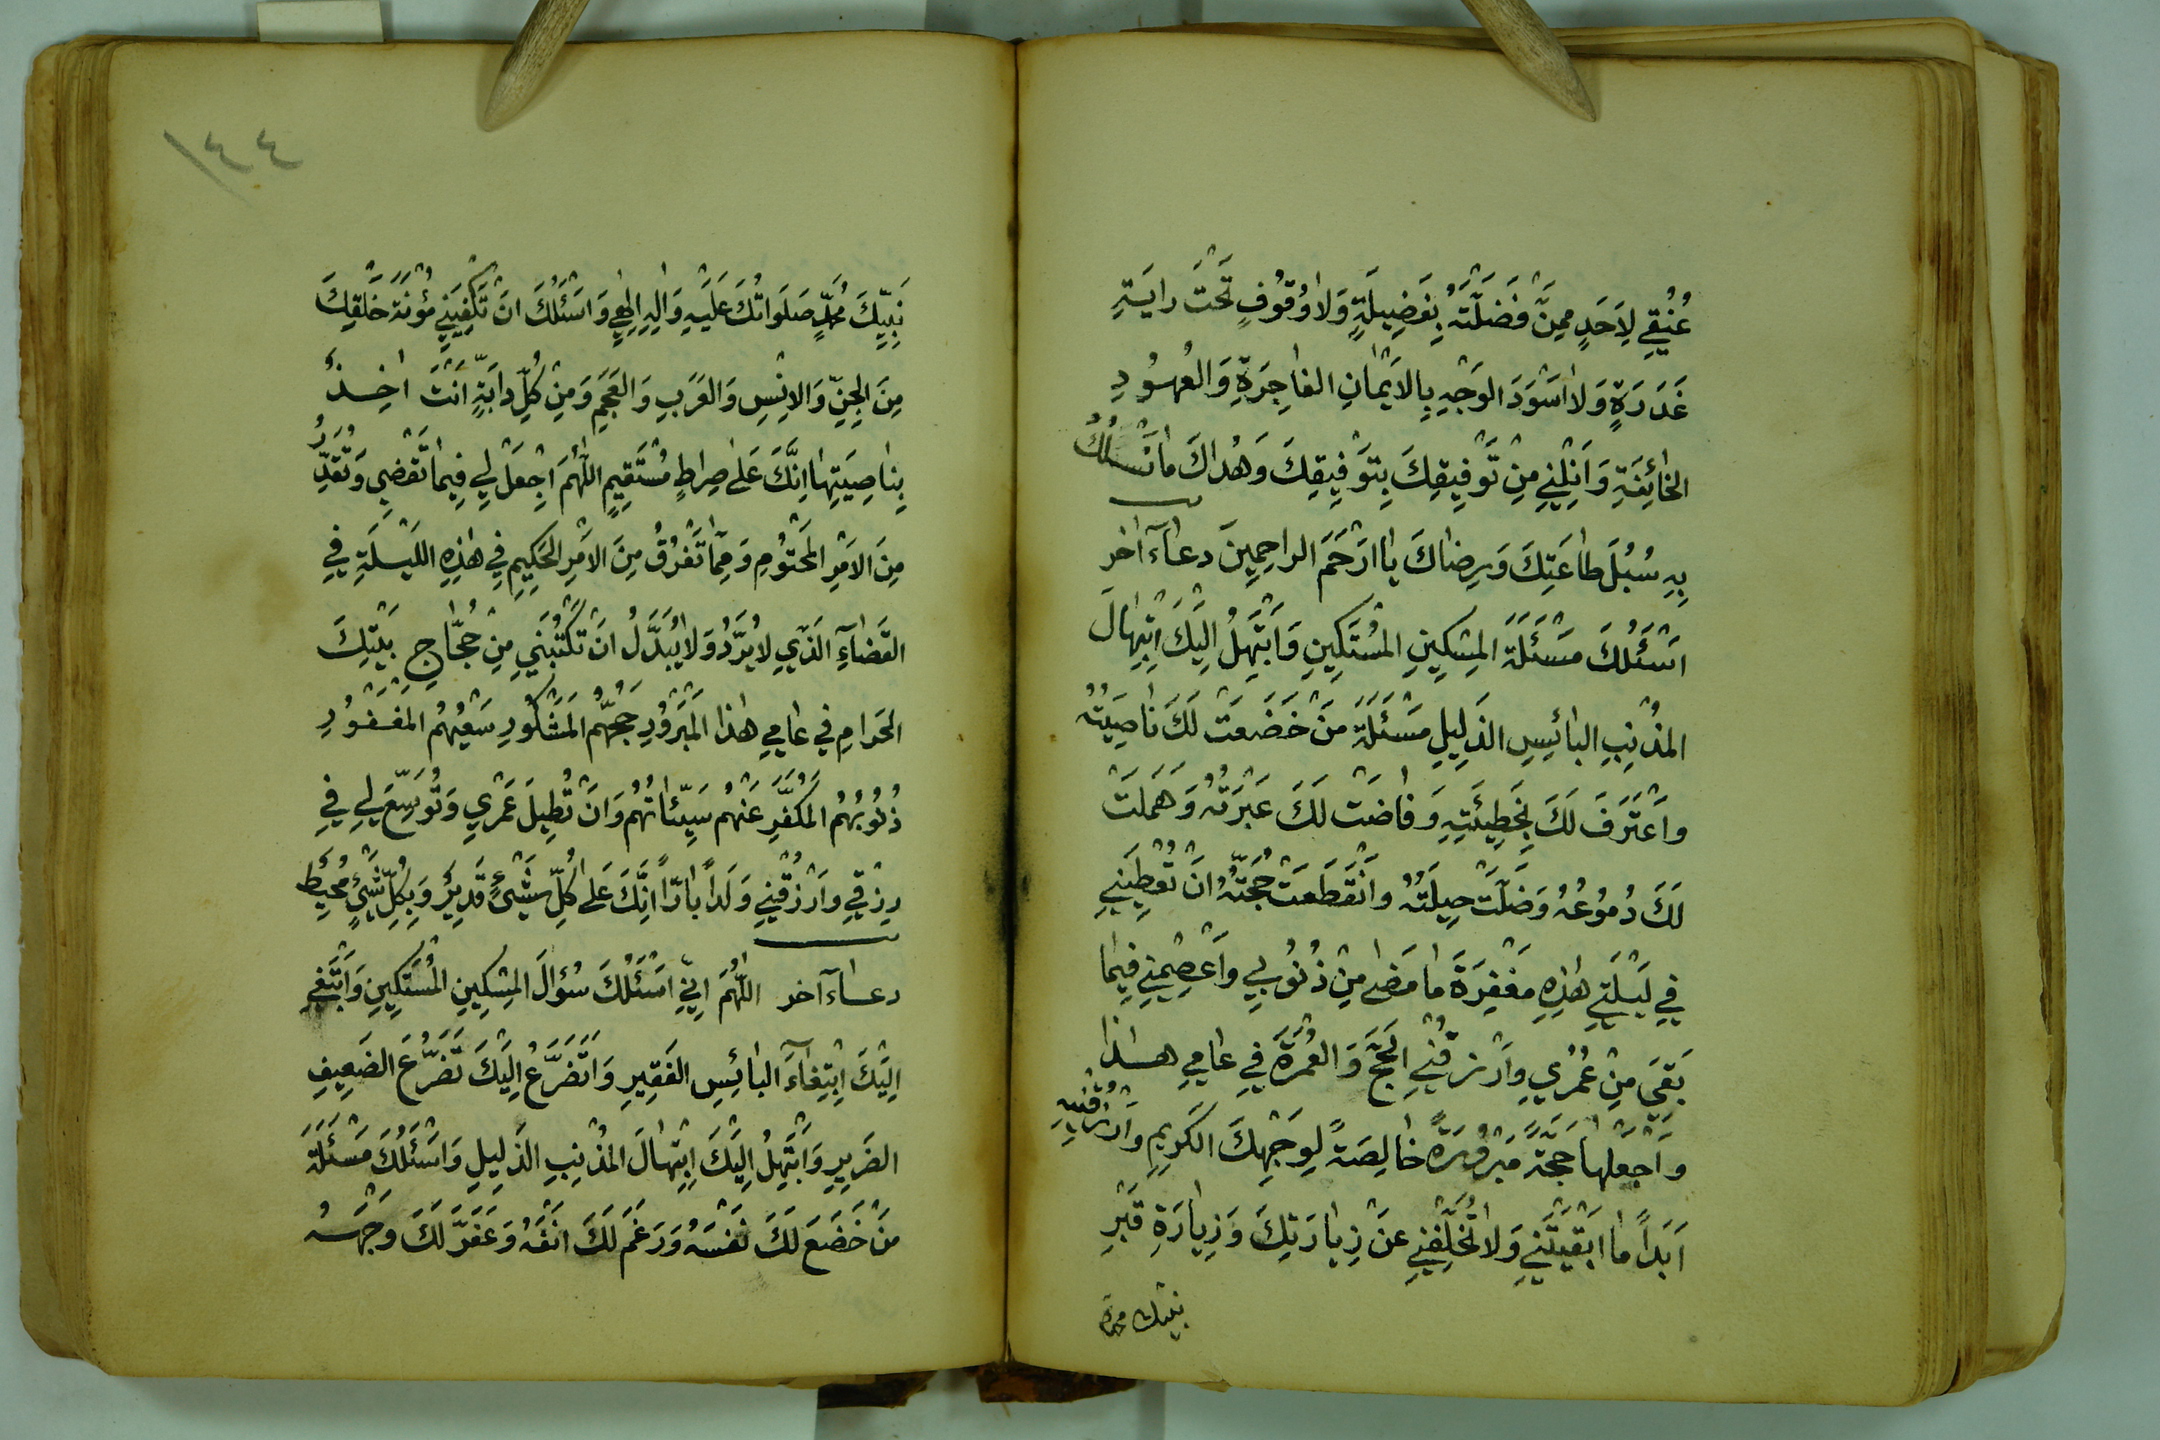 عُنُقِي لِاَحَدٍ مِمَّنْ فَضَّلْتَهُ بِفَضِيلَةٍ وَلاٰ وُقُوفٍ تَحْتَ رايَةِ
غَدَرَةٍ وَلاٰ اَسْوَدَ الوَجْهِ بِالاَيْمٰانِ الفٰاجِرَةِ وَالعُهُودِ
الخٰائِنَةِ وَاَنِلْنِي مِنْ تَوْفِيقِكَ بِتَوْفِيقِكَ وَهُدٰاكَ مٰا نَسْلُكُ
بِهِ سُبُلَ طٰاعَتِكَ وَرِضٰاكَ يٰا اَرْحَمَ الراحِمِينَ دعآء آخر
اَسْئَلُكَ مَسْئَلَةَ المِسْكِينِ المُسْتَكِينِ وَاَبْتَهِلُ اِلَيْكَ اِبْتِهٰالَ
المُذْنِبِ البٰائِسِ الذَلِيلِ مَسْئَلَةَ مَنْ خَضَعَتْ لَكَ نٰاصِيَتُهُ
وَاَعْتَرَفَ لَكَ بِخَطِيئَتِهِ وَفٰاضَتْ لَكَ عَبْرَتُهُ وَهَمَلَتْ
لَكَ دُمُوعُهُ وَضَلَّتْ حِيلَتُهُ وَانْقَطَعَتْ حُجَّتُهُ اَنْ تُعْطِيَنِي
فِي لَيْلَتِي هٰذِهِ مَغْفِرَةَ مٰا مَضٰى مِنْ ذُنُوبِي وَاَعْصِمْنِي فِيمٰا
بَقِيَ مِنْ عُمُرِي وَاَرْزُقْنِي الحَجَّ وَالعُمْرَةَ فِي عٰامِي هٰذٰا
وَاَجْعَلْهٰا حَجَّةً مَبْرُورَةً خٰالِصَةً لِوَجْهِكَ الكَرِيمِ وَاَرْزُقْنِيهِ
اَبَداً مٰا اَبْقَيْتَنِي وَلاٰ تُخَلِّفْنِي عَنْ زِيٰارَتِكَ وَزِيٰارَةِ قَبْرِ
نبيّك محمّد
١٤٤
نَبِيِّكَ مُحَمَّدٍ صَلَوَاتُكَ عَلَيْهِ وَاٰلِهِ اِلٰهِي وَاَسْئَلُكَ اَنْ تَكْفِيَنِي مَؤُنَةَ خَلْقِكَ
مِنَ الجِنِّ وَالاِنْسِ وَالعَرَبِ وَالعَجَمِ وَمِنْ كُلِّ دٰابَّةٍ اَنْتَ اٰخِذٌ
بِنٰاصِيَتِهٰا اِنَّكَ عَلٰى صِرٰاطٍ مُسْتَقِيمٍ اللّٰهُمَّ اجْعَلْ لِي فِيمٰا تَقْضِي وَتُقَدِّرُ
مِنَ الاَمْرِ المَحْتُومِ وَمِمّٰا تَفْرُقُ مِنَ الاَمْرِ الحَكِيمِ فِي هٰذِهِ اللَيْلَةِ فِي
القَضٰآءِ الَذِي لاٰ يُرَدُّ وَلاٰ يُبَدَّلُ اَنْ تَكْتُبَنِي مِنْ حُجّٰاجِ بَيْتِكَ
الحَرامِ فِي عٰامِي هٰذا المَبْرُورِ حَجُّهُمُ المَشْكُورِ سَعْيُهُمُ المَغْفُورِ
ذُنُوبُهُمُ المُكَفَّرِ عَنْهُمْ سَيِّئٰاتُهُمْ وَاَنْ تُطِيلَ عُمْرِي وَتُوَسِّعَ لِي فِي
رِزْقِي وَاَرْزُقْنِي وَلَداً بٰارّاً اِنَّكَ عَلٰى كُلِّ شَيْءٍ قَدِيرٌ وَبِكُلِّ شَيْءٍ مُحِيطٌ
دعآء آخر اللّٰهُمَّ اِنِّي اَسْئَلُكَ سُؤٰالَ المِسْكِينِ المُسْتَكِينِ وَاَبْتَغِي
اِلَيْكَ اِبْتِغٰآءَ البٰائِسِ الفَقِيرِ وَاَتَضَرَّعُ اِلَيْكَ تَضَرُّعَ الضَعِيفِ
الضَرِيرِ وَاَبْتَهِلُ اِلَيْكَ اِبْتِهٰالَ المُذْنِبِ الذَلِيلِ وَاَسْئَلُكَ مَسْئَلَةَ
مَنْ خَضَعَ لَكَ نَفْسَهُ وَرَغَمَ لَكَ اَنْفَهُ وَعَفَّرَ لَكَ وَجْهَهُ